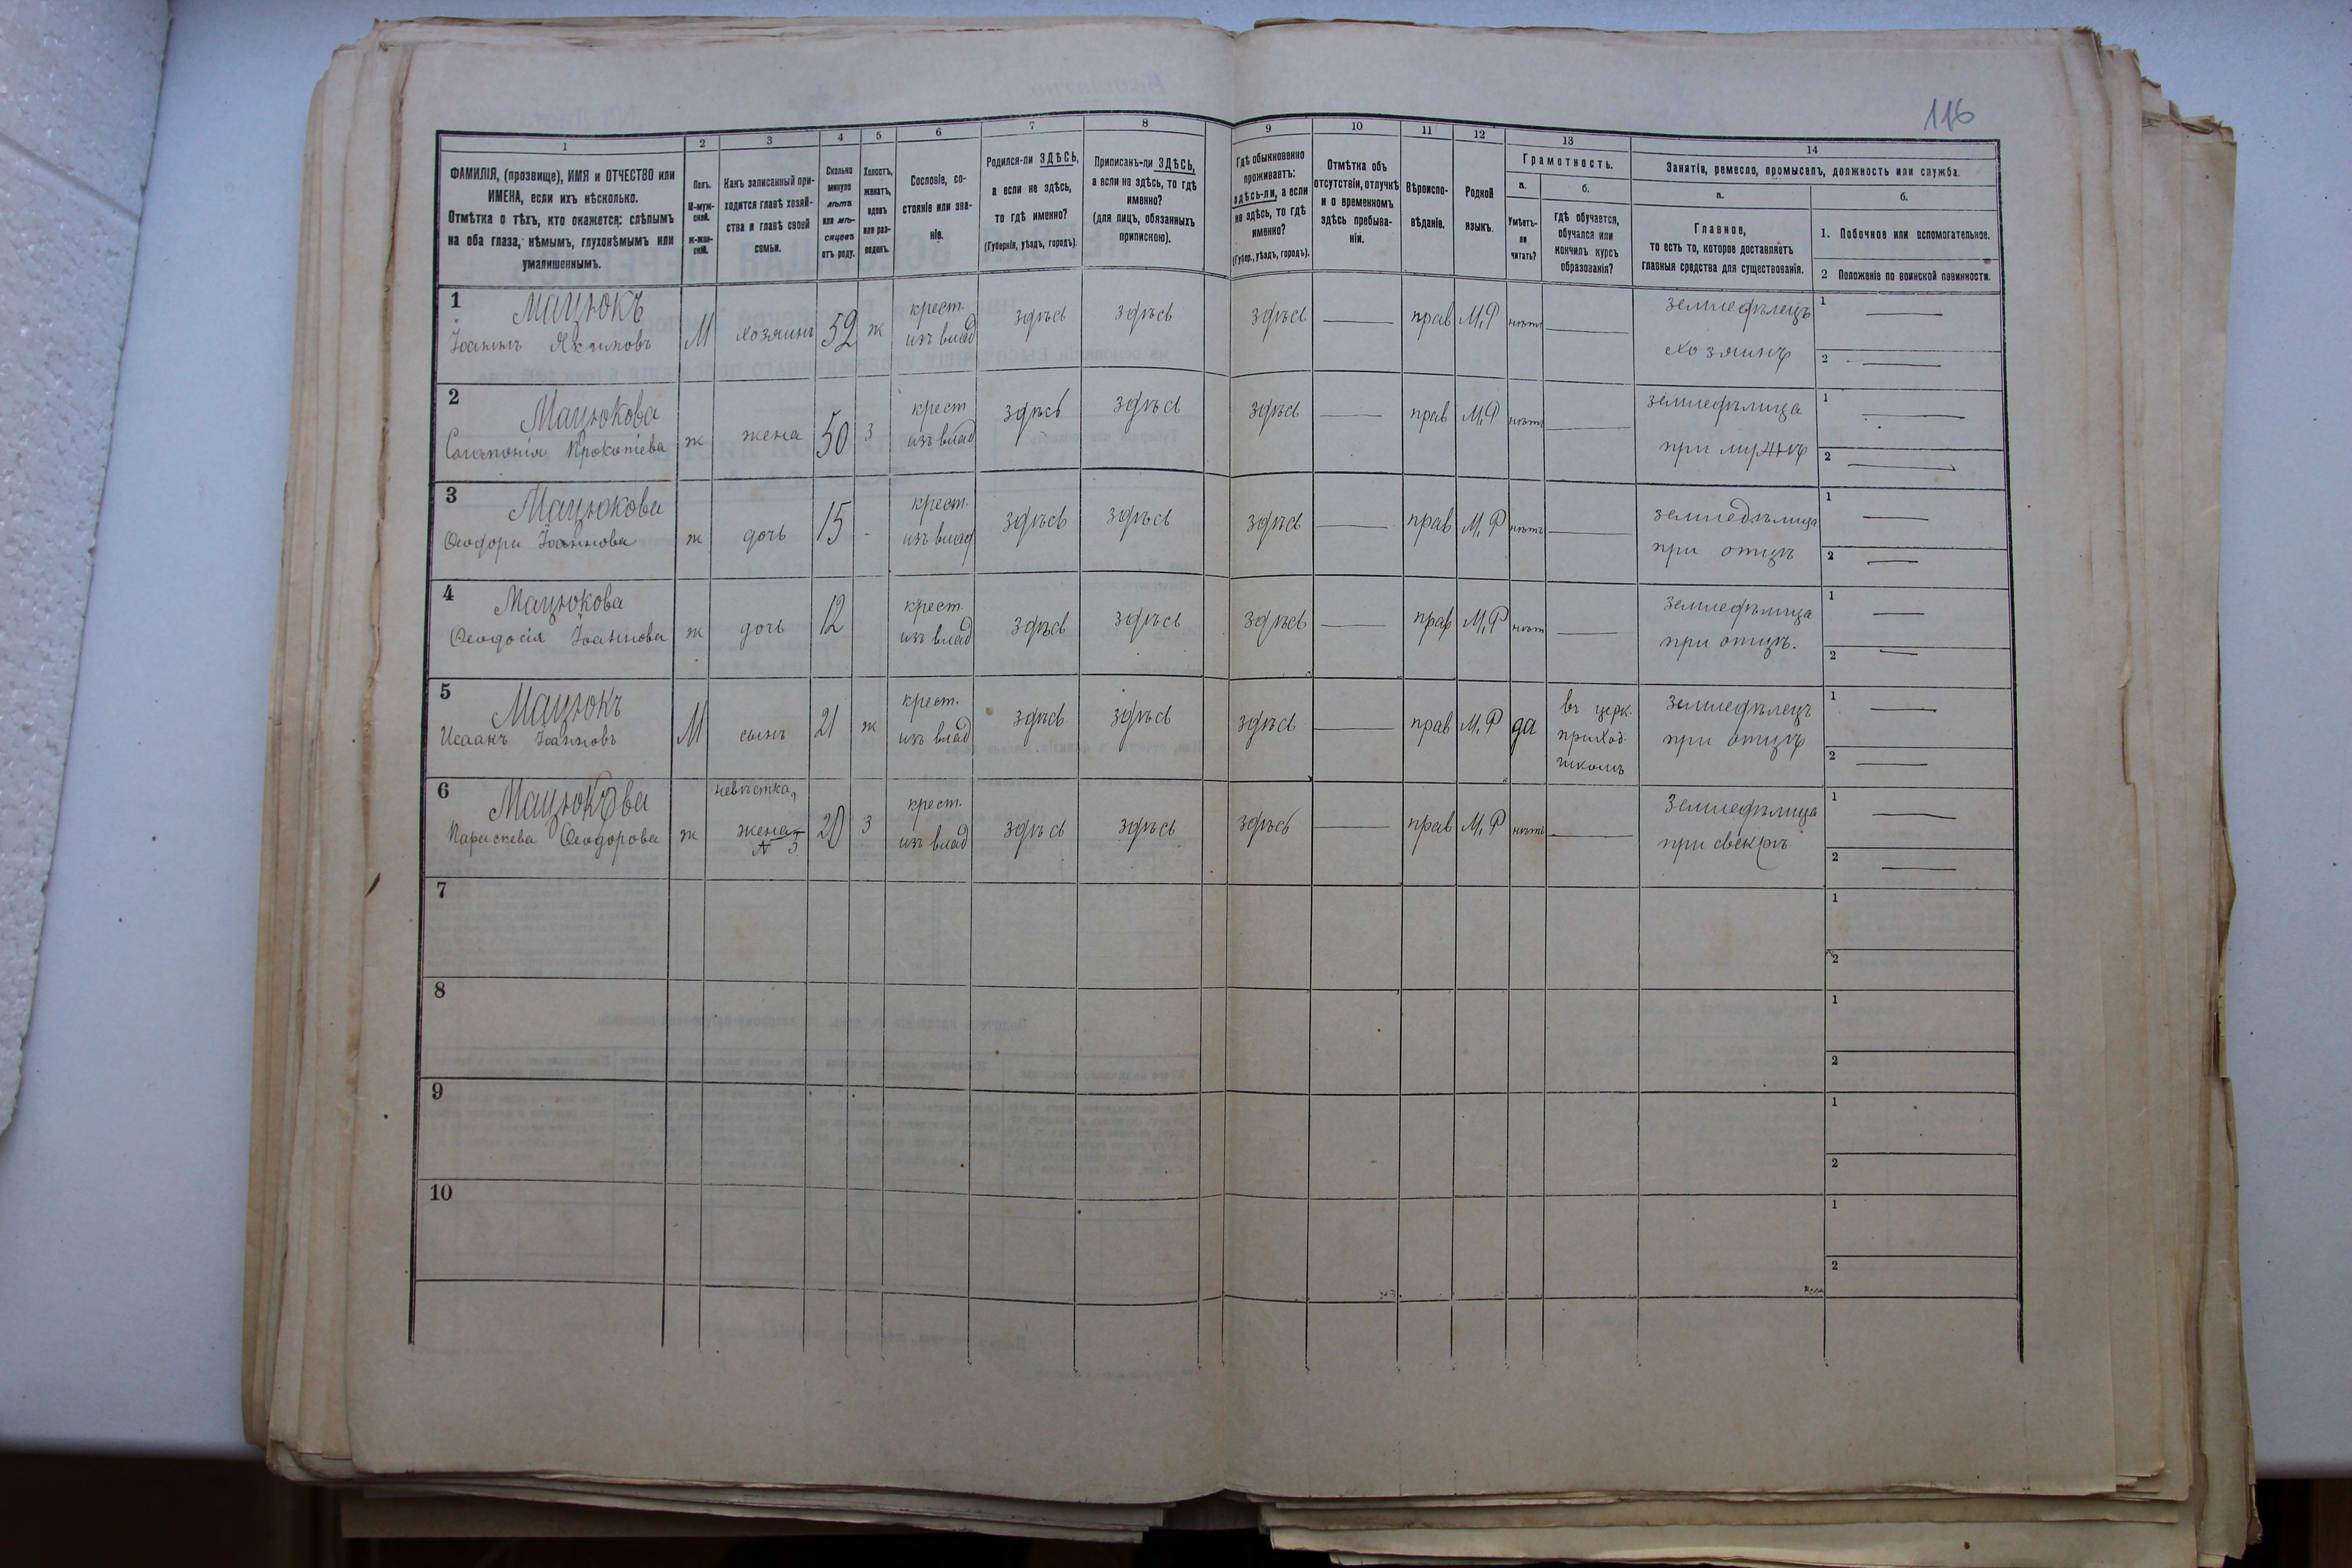 116
1
2
3
4
5
6
7
8
9
10
11
12
13
14
ФАМИЛІЯ, (прозвище), ИМЯ и ОТЧЕСТВО или
ИМЕНА, если ихъ нѣсколько.
Отмѣтка о тѣхъ, кто окажется: слѣпымъ
на оба глаза, нѣмымъ, глухонѣмымъ или
умалишеннымъ.
Полъ.
М-муж-
ской.
ж-жен-
скій.
Какъ записанный при-
ходится главѣ хозяй-
ства и главѣ своей
семьи.
Сколько
минуло
лѣтъ
или мѣ-
сяцевъ
отъ роду.
Холостъ,
женатъ,
вдовъ
или раз-
веденъ.
Сословіе, со-
стояніе или зва-
ніе.
Родился-ли ЗДѢСЬ,
а если не здѣсь,
то гдѣ именно?
(Губернія, уѣздъ, городъ).
Приписанъ-ли ЗДѢСЬ,
а если не здѣсь, то гдѣ
именно?
(для лицъ, обязанныхъ
припискою).
Гдѣ обыкновенно
проживаетъ:
здѣсь-ли, а если
не здѣсь, то гдѣ
именно?
(Губер., уѣздъ, городъ).
Отмѣтка объ
отсутствіи, отлучкѣ
и о временномъ
здѣсь пребыва-
ніи.
Вѣроиспо-
вѣданіе.
Родной
языкъ.
Грамотность.
а.
б.
Умѣетъ-
ли
читать?
гдѣ обучается,
обучался или
кончилъ курсъ
образованія?
Занятіе, ремесло, промыселъ, должность или служба.
а.
б.
Главное,
то есть то, которое доставляетъ
главныя средства для существованія.
1. Побочное или вспомогательное.
2 Положеніе по воинской повинности.
1 Мацюкъ
Іоаннъ Якимовъ М хозяинъ 52 ж крест. изъ влад здѣсь здѣсь здѣсь — прав М,Р нѣтъ — земледѣлецъ хозяинъ 1 — 2 —
2 Мацюкова
Прокопіева ж жена 50 з крест изъ влад здѣсь здѣсь здѣсь — прав М,Р нѣтъ — земледѣлица при мужѣ 1 — 2 —
3 Мацюкова
Ѳеодора Іоаннова ж дочь 15 - крест. изъ влад здѣсь здѣсь здѣсь — прав М,Р нѣтъ — земледѣлица при отцѣ 1 — 2 —
4 Мацюкова
Ѳеодосія Іоаннова ж дочь 12 крест. изъ влад здѣсь здѣсь здѣсь — прав М,Р нѣтъ — земледѣлица при отцѣ. 1 — 2 —
5 Мацюкъ
Исаакъ Іоанновъ М сынъ 21 ж крест. изъ влад здѣсь здѣсь здѣсь — прав М,Р да въ церк. приход. школѣ земледѣлецъ при отцѣ 1 — 2 —
6 Мацюкова
Параскева Ѳеодорова ж невѣстка, жена N 5 20 з крест. изъ влад здѣсь здѣсь здѣсь — прав М,Р нѣтъ — земледѣлица при свекрѣ 1 — 2 —
7 1
2
8 1
2
9 1
2
10 1
2